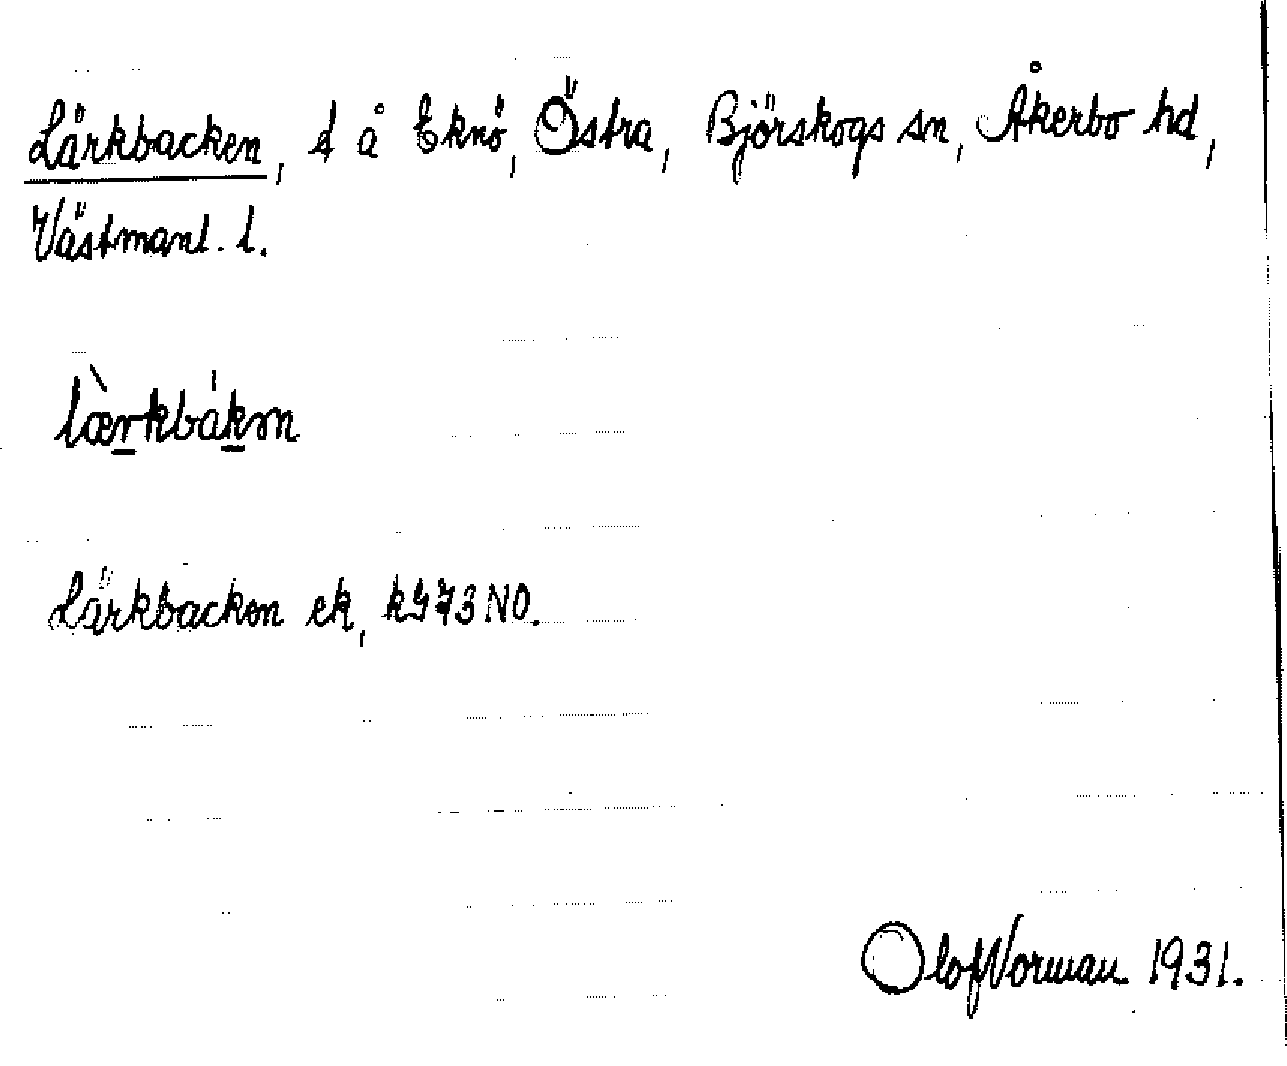 Lärkbacken, t å Eknö, Östra, Björskogs sn, Åkerbo hd,
Västmanl. l.
lærkbákən
Lärkbacken ek, kG73NO.
Olof Norman 1931.